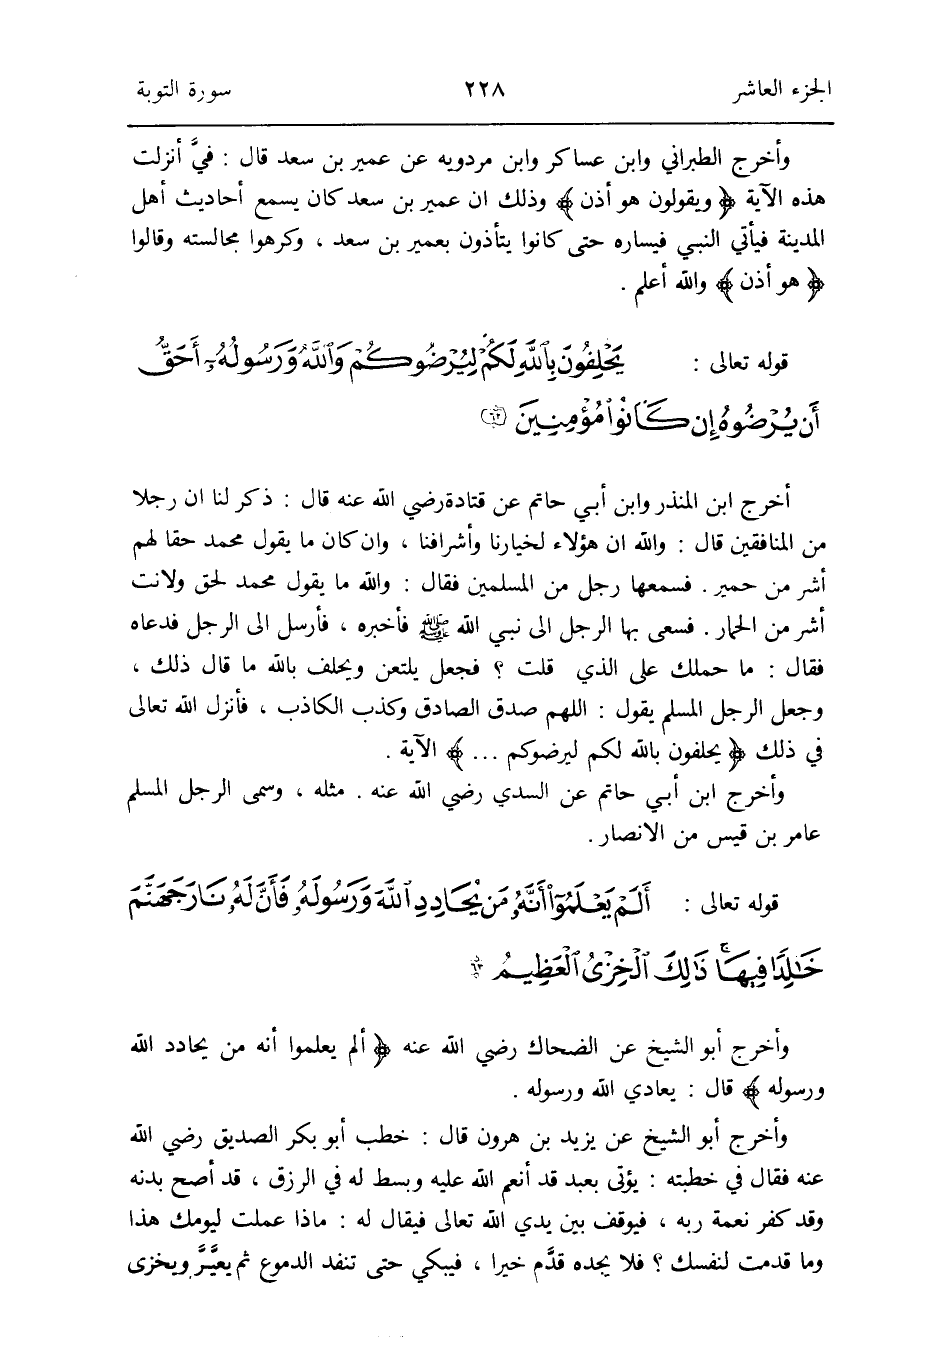 الجزء العاشر ٢٢٨ سورة التوبة
وأخرج الطبراني وابن عساكر وابن مردويه عن عمير بن سعد قال : فيَّ أنزلت
هذه الآية ﴿ ويقولون هو أذن ﴾ وذلك ان عمير بن سعد كان يسمع أحاديث أهل
المدينة فيأتي النبي فيساره حتى كانوا يتأذون بعمير بن سعد ، وكرهوا مجالسته وقالوا
﴿ هو أذن ﴾ والله أعلم .
قوله تعالى : يَحْلِفُونَ بِٱللَّهِ لَكُمْ لِيُرْضُوكُمْ وَٱللَّهُ وَرَسُولُهُۥٓ أَحَقُّ
أَن يُرْضُوهُ إِن كَانُوا۟ مُؤْمِنِينَ ٦٢
أخرج ابن المنذر وابن أبي حاتم عن قتادة رضي الله عنه قال : ذكر لنا ان رجلا
من المنافقين قال : والله ان هؤلاء لخيارنا وأشرافنا ، وان كان ما يقول محمد حقا لهم
أشر من حمير . فسمعها رجل من المسلمين فقال : والله ما يقول محمد لحق ولانت
أشر من الحمار . فسعى بها الرجل الى نبي الله ﷺ فأخبره ، فأرسل الى الرجل فدعاه
فقال : ما حملك على الذي قلت ؟ فجعل يلتعن ويحلف بالله ما قال ذلك ،
وجعل الرجل المسلم يقول : اللهم صدق الصادق وكذب الكاذب ، فأنزل الله تعالى
في ذلك ﴿ يحلفون بالله لكم ليرضوكم ... ﴾ الآية .
وأخرج ابن أبي حاتم عن السدي رضي الله عنه . مثله ، وسمى الرجل المسلم
عامر بن قيس من الانصار .
قوله تعالى : أَلَمْ يَعْلَمُوٓا۟ أَنَّهُۥ مَن يُحَادِدِ ٱللَّهَ وَرَسُولَهُۥ فَأَنَّ لَهُۥ نَارَ جَهَنَّمَ
خَٰلِدًا فِيهَا ۚ ذَٰلِكَ ٱلْخِزْىُ ٱلْعَظِيمُ ٦٣
وأخرج أبو الشيخ عن الضحاك رضي الله عنه ﴿ ألم يعلموا أنه من يحادد الله
ورسوله ﴾ قال : يعادي الله ورسوله .
وأخرج أبو الشيخ عن يزيد بن هرون قال : خطب أبو بكر الصديق رضي الله
عنه فقال في خطبته : يؤتى بعبد قد أنعم الله عليه وبسط له في الرزق ، قد أصح بدنه
وقد كفر نعمة ربه ، فيوقف بين يدي الله تعالى فيقال له : ماذا عملت ليومك هذا
وما قدمت لنفسك ؟ فلا يجده قدَّم خيرا ، فيبكي حتى تنفد الدموع ثم يعيَّر ويخزى